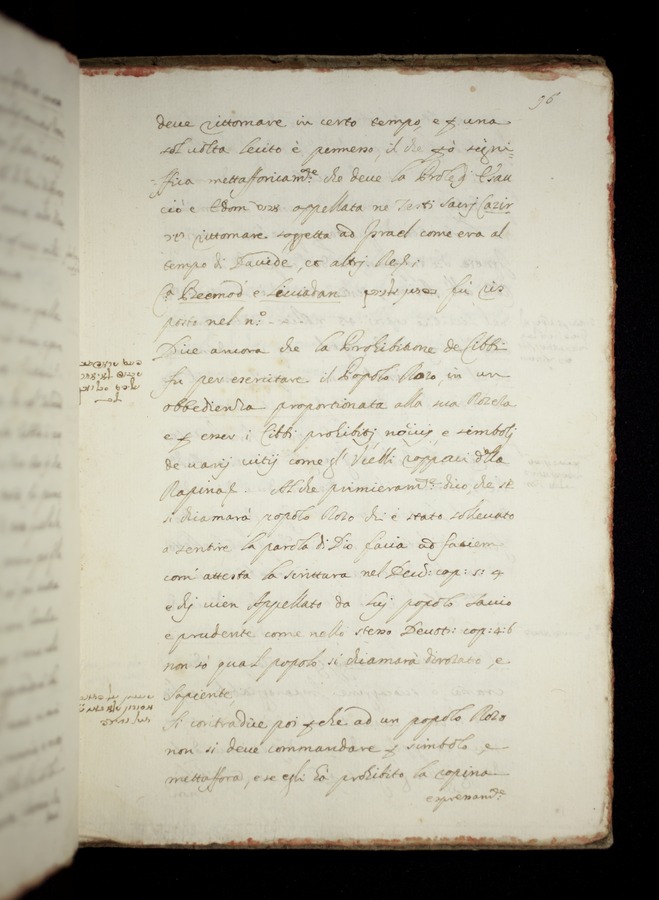 96
deve rittornare in certo tempo, e p una
sol volta lecito è permesso, il che ciò signi-
ffica mettafforicam.te che deve la Prole di Esau
cioè Edom appellata ne Testi Sacri Cazir
rittornare sogetta ad Israel come era al
tempo di Davide, et altrj Regi,
Beemod e Leviadan fù ris
posto nel n.o
Dice ancora che la Prohibitione de Cibbi
fu per esercitare il Popolo Rozo, in un
obbedienza proportionata alla sua Rozeza
e p esser i Cibbi prohibitj nocivj e simbolj
de varij vitij come gl' Ucelli rappaci della
Rapina &. Al che primieram.te dico, che se
si chiamarà popolo Rozo chi è stato sollevato
a sentire la parola di Dio facia ad faciem
com' attesta la scrittura nel Deut: cap: 5: 4
e chi vien Appellato da lui popolo savio
e prudente come nello stesso Deuot: cap: 4: 6
non sò qual popolo si chiamarà dirozato, e
sapiente,
Si contradice poi p che ad un popolo Rozo
non si deve commandare p simbolo, e
mettaffora, e se egli hà prohibito la rapina
espressam.te